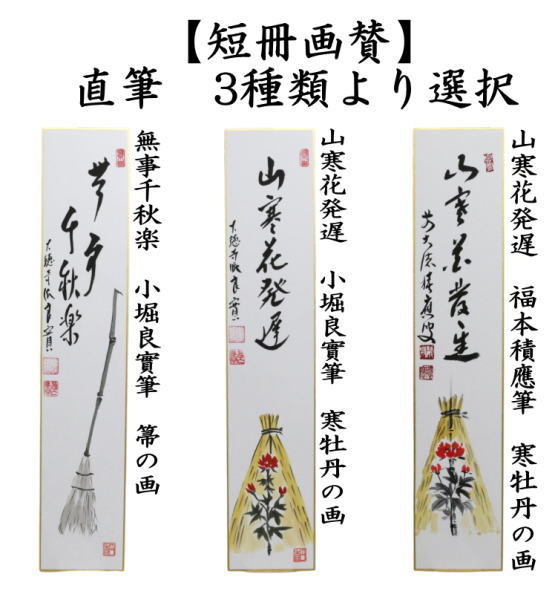 【短冊画賛】
直筆 3種類より選択
無事千秋楽 小堀良實筆 箒の画
無事
千秋楽
山寒花発遅 小堀良實筆 寒牡丹の画
山寒花発遅
山寒花発遅 福本積應筆 寒牡丹の画
山寒花発遅